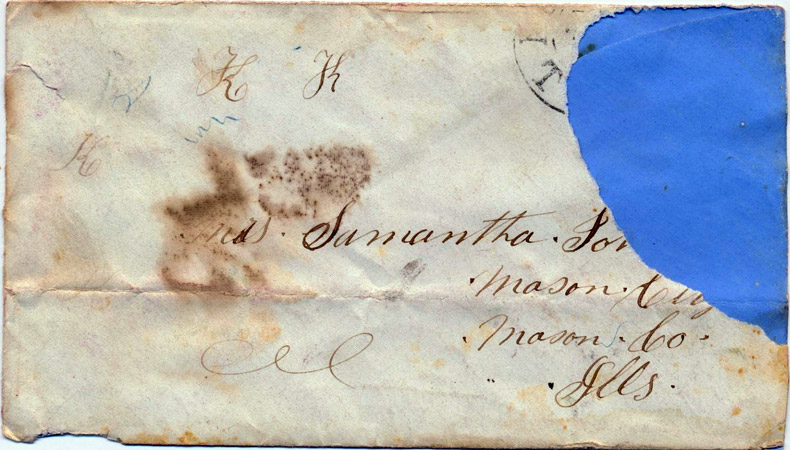 K K
K
Mrs. Samantha.
Mason. City
Mason. Co.
Ills.